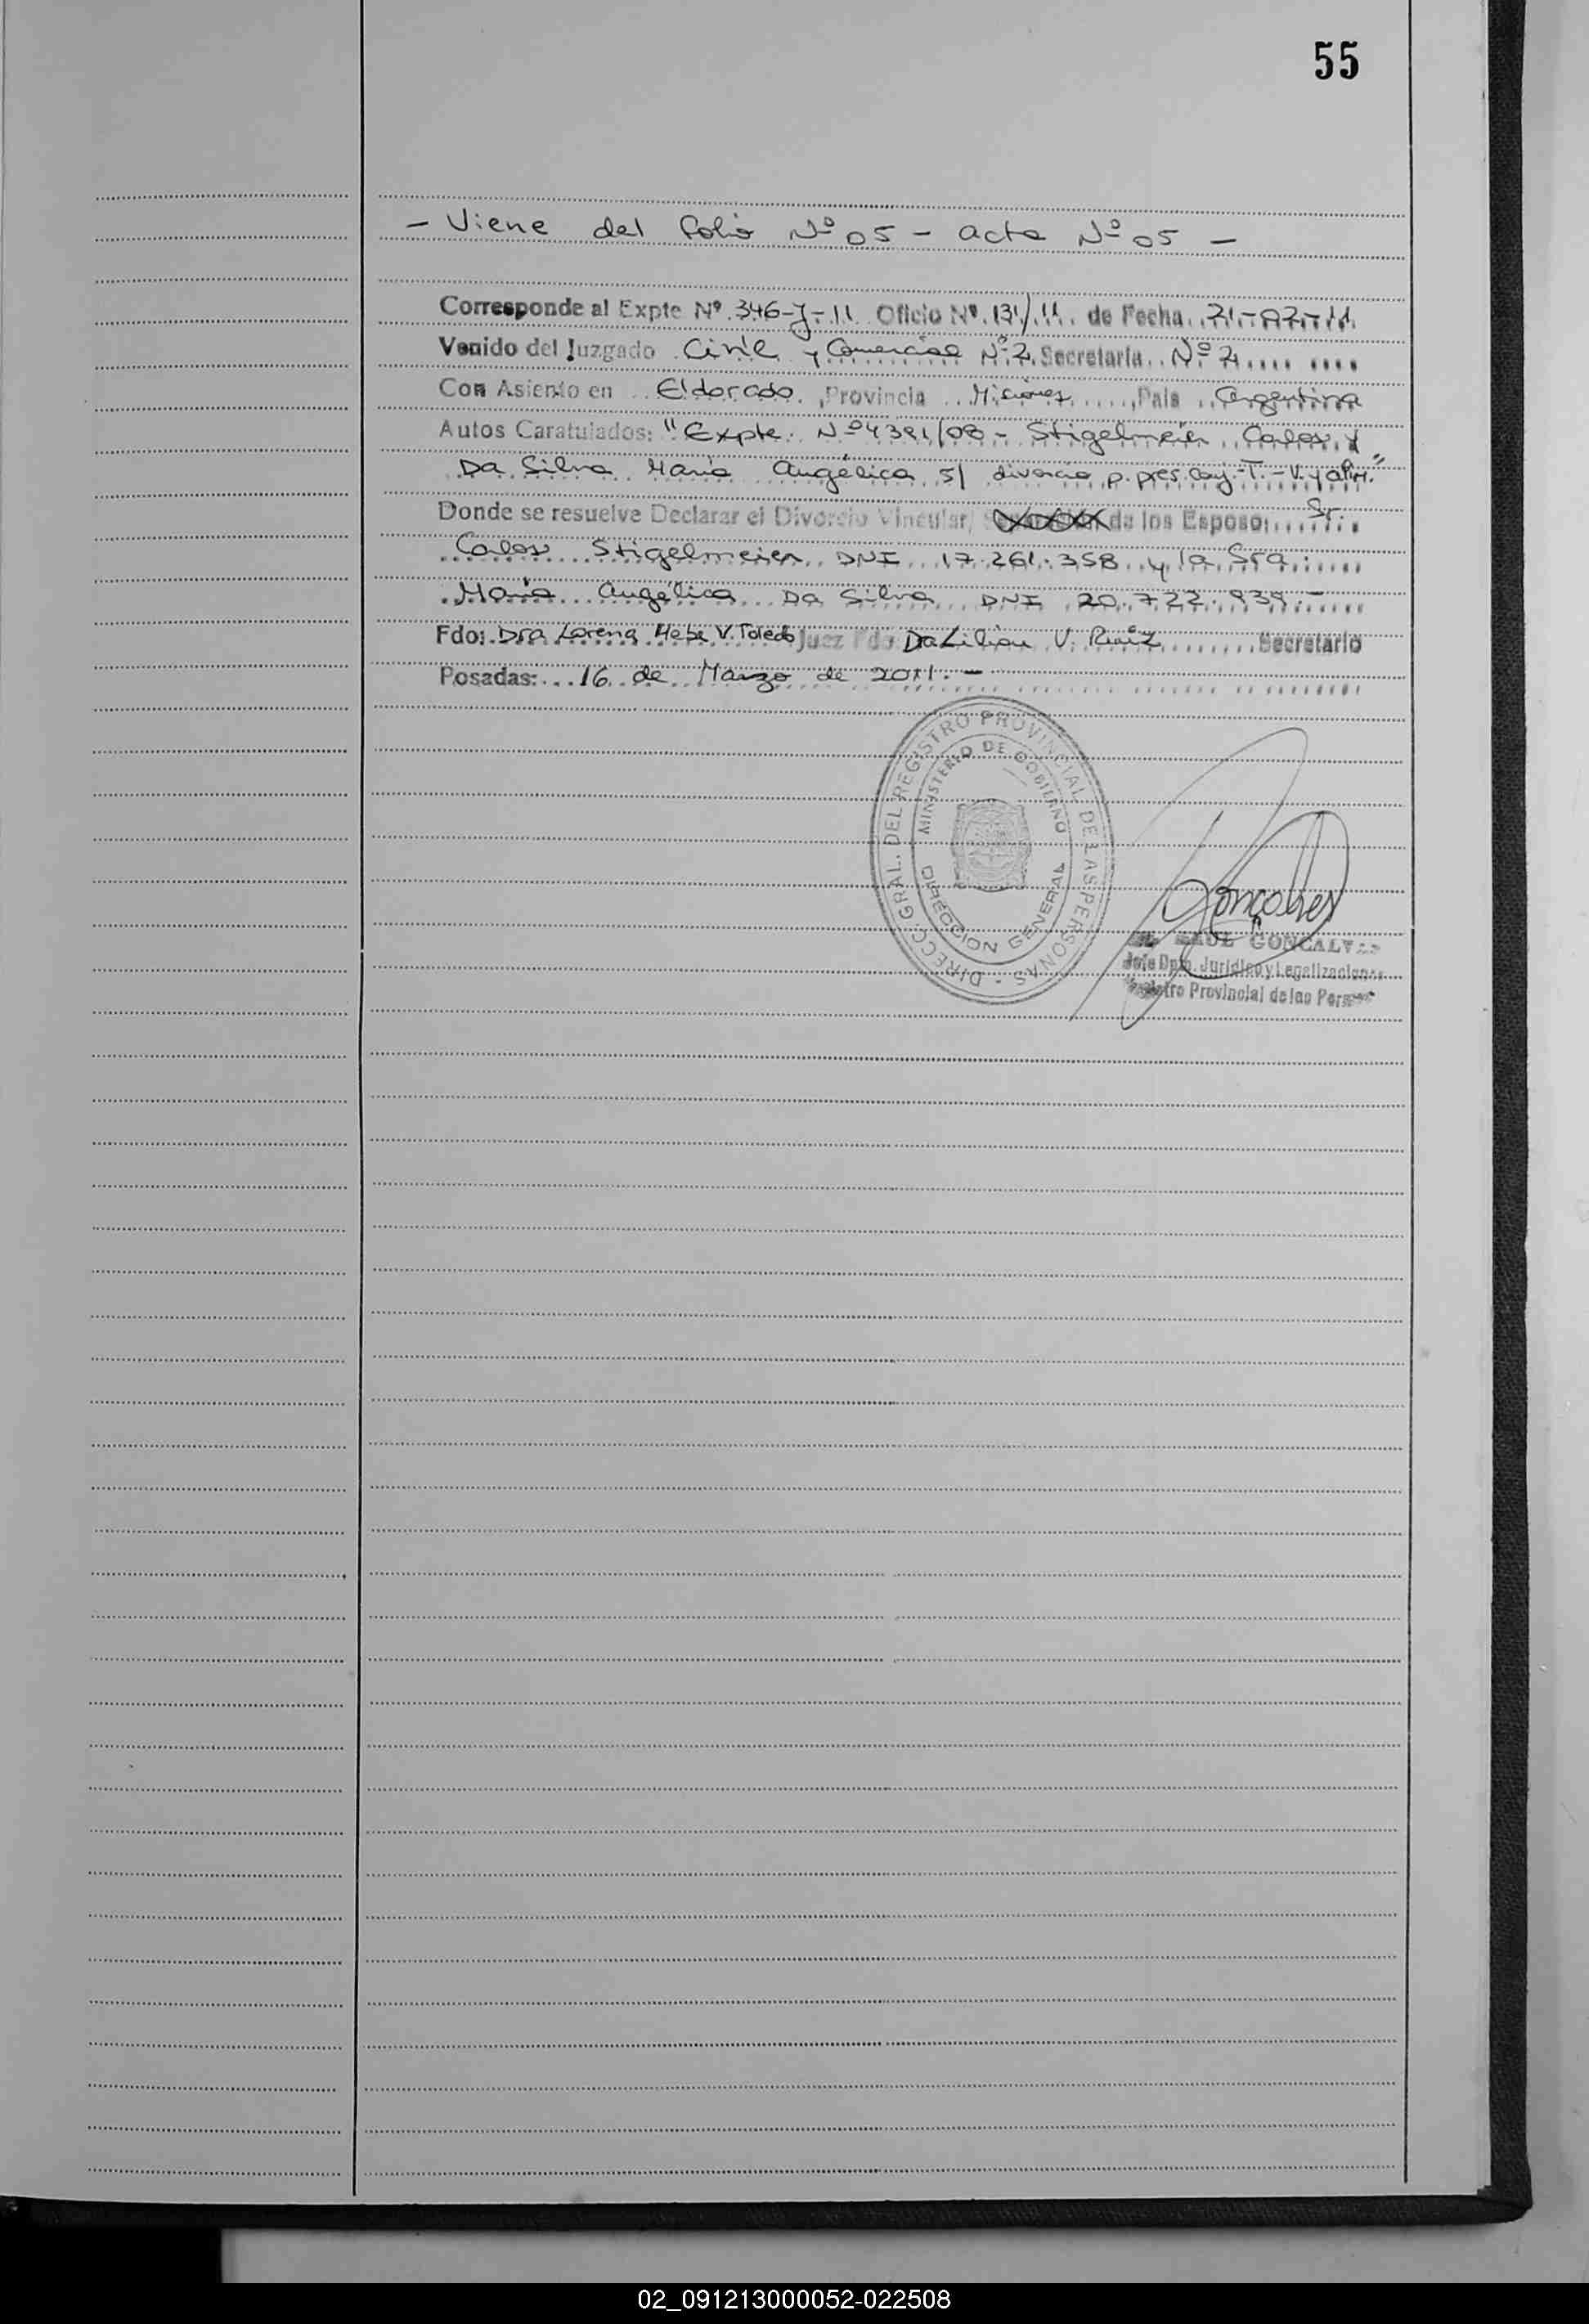 55
- Viene del folio Nº 05 - acta Nº 05 -
Corresponde al Expte Nº 346-J-11 Oficio Nº 131/11 de Fecha 21-02-11
Venido del Juzgado Civil y Comercial Nº 2 Secretaria Nº 2
Con Asiento en Eldorado, Provincia Misiones, Pais Argentina
Autos Caratulados: "Expte. Nº 4391/08 - Stigelmeier Carlos y
Da Silva María Angélica s/ divorcio p. pres. conj. - T. - V. y alim."
Donde se resuelve Declarar el Divorcio Vincular, de los Esposos Sr.
Carlos Stigelmeier DNI 17.261.358 y la Sra.
María Angélica Da Silva DNI 20.722.939.-
Fdo: Dra Lorena Hebe V. Toledo Juez Fdo Dra Lilian V. Ruiz Secretario
Posadas: 16 de Marzo de 2011.-
DIRECC. GRAL. DEL REGISTRO PROVINCIAL DE LAS PERSONAS -
MINISTERIO DE GOBIERNO
DIRECCION GENERAL
Gonçalves
RAUL GONCALVES
Jefe Dpto. Juridico y Legalizaciones
Registro Provincial de las Personas
02_091213000052-022508